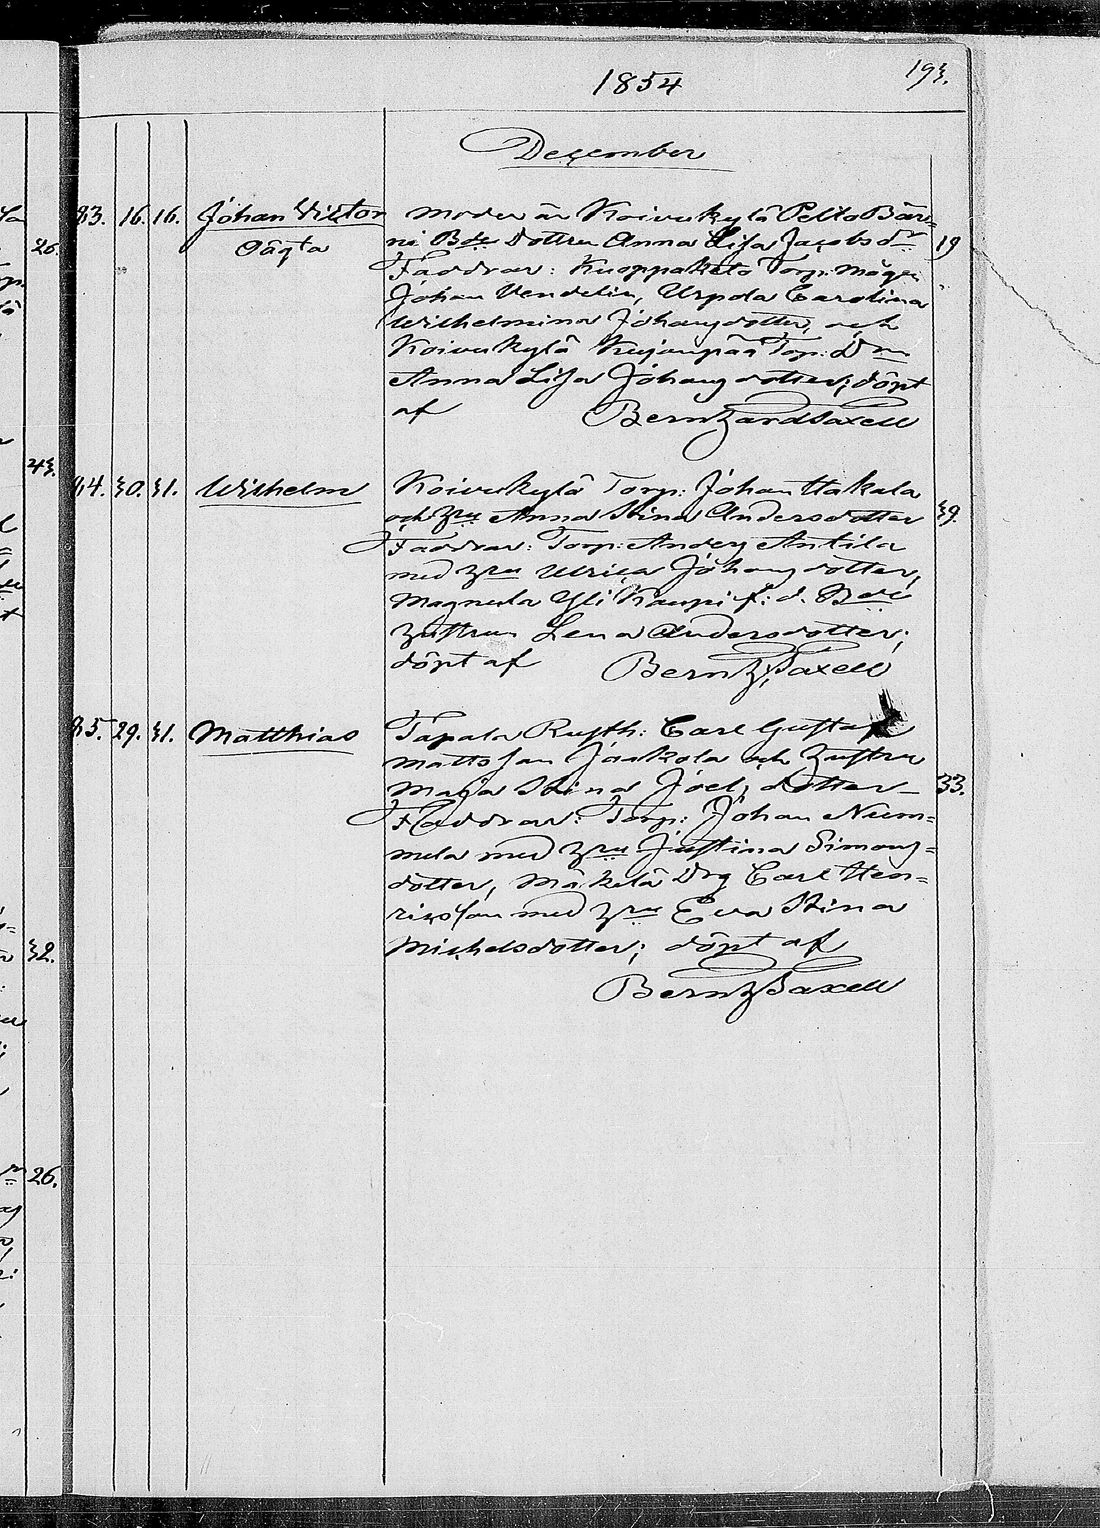 1854
193.
December
83. 16. 16. Johan Victor Moder är Koivukylä Pelto Bär=
Oägta ni Bde Dottren Anna Lisa Jacobsdr 19
Faddrar: Kuoppaketo Torp: Mågen
Johan Vendelin, Urpola Carolina
Wilhelmina Johansdotter, och
Koivukylä Kujanpää Torp: Drn
Anna Lisa Johansdotter; döpt
af Berntzard Saxell
84. 30. 31. Wilhelm Koivukylä Torp: Johan Hakala
och Hru Anna Stina Andersdotter 39.
Faddrar: Torp: Anders Antila
med Hru Ulrica Johansdotter,
Magnula Yli Kaupi f: d. Bde
Hustrun Lena Andersdotter;
döpt af Bernh Saxell
85. 29. 31. Matthias Tapala Rusth: Carl Gustaf
Mattsson Jaakola och Hustru
Maja Stina Joelsdotter 33.
Faddrar: Torp: Johan Niem=
mela med Hru Justina Simons=
dotter, Mäkelä Drg Carl Hen=
ricsson med Hru Eva Stina
Michelsdotter; döpt af
Bernh Saxell
26.
43.
32.
26.